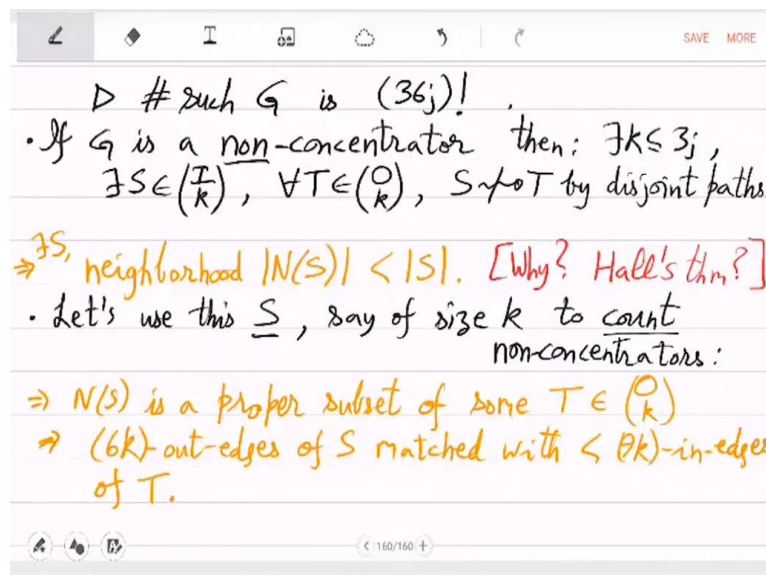 SAVE MORE
▷ # such G is (36j)!.
• If G is a non-concentrator then: ∃k≤3j,
∃S∈(I k), ∀T∈(O k), S↛T by disjoint paths
⇒ ∃S, neighborhood |N(S)| < |S|. [Why? Hall's thm?]
• Let's use this S, say of size k to count
non-concentrators:
⇒ N(S) is a proper subset of some T ∈ (O k)
⇒ (6k)-out-edges of S matched with < (9k)-in-edges
of T.
160/160